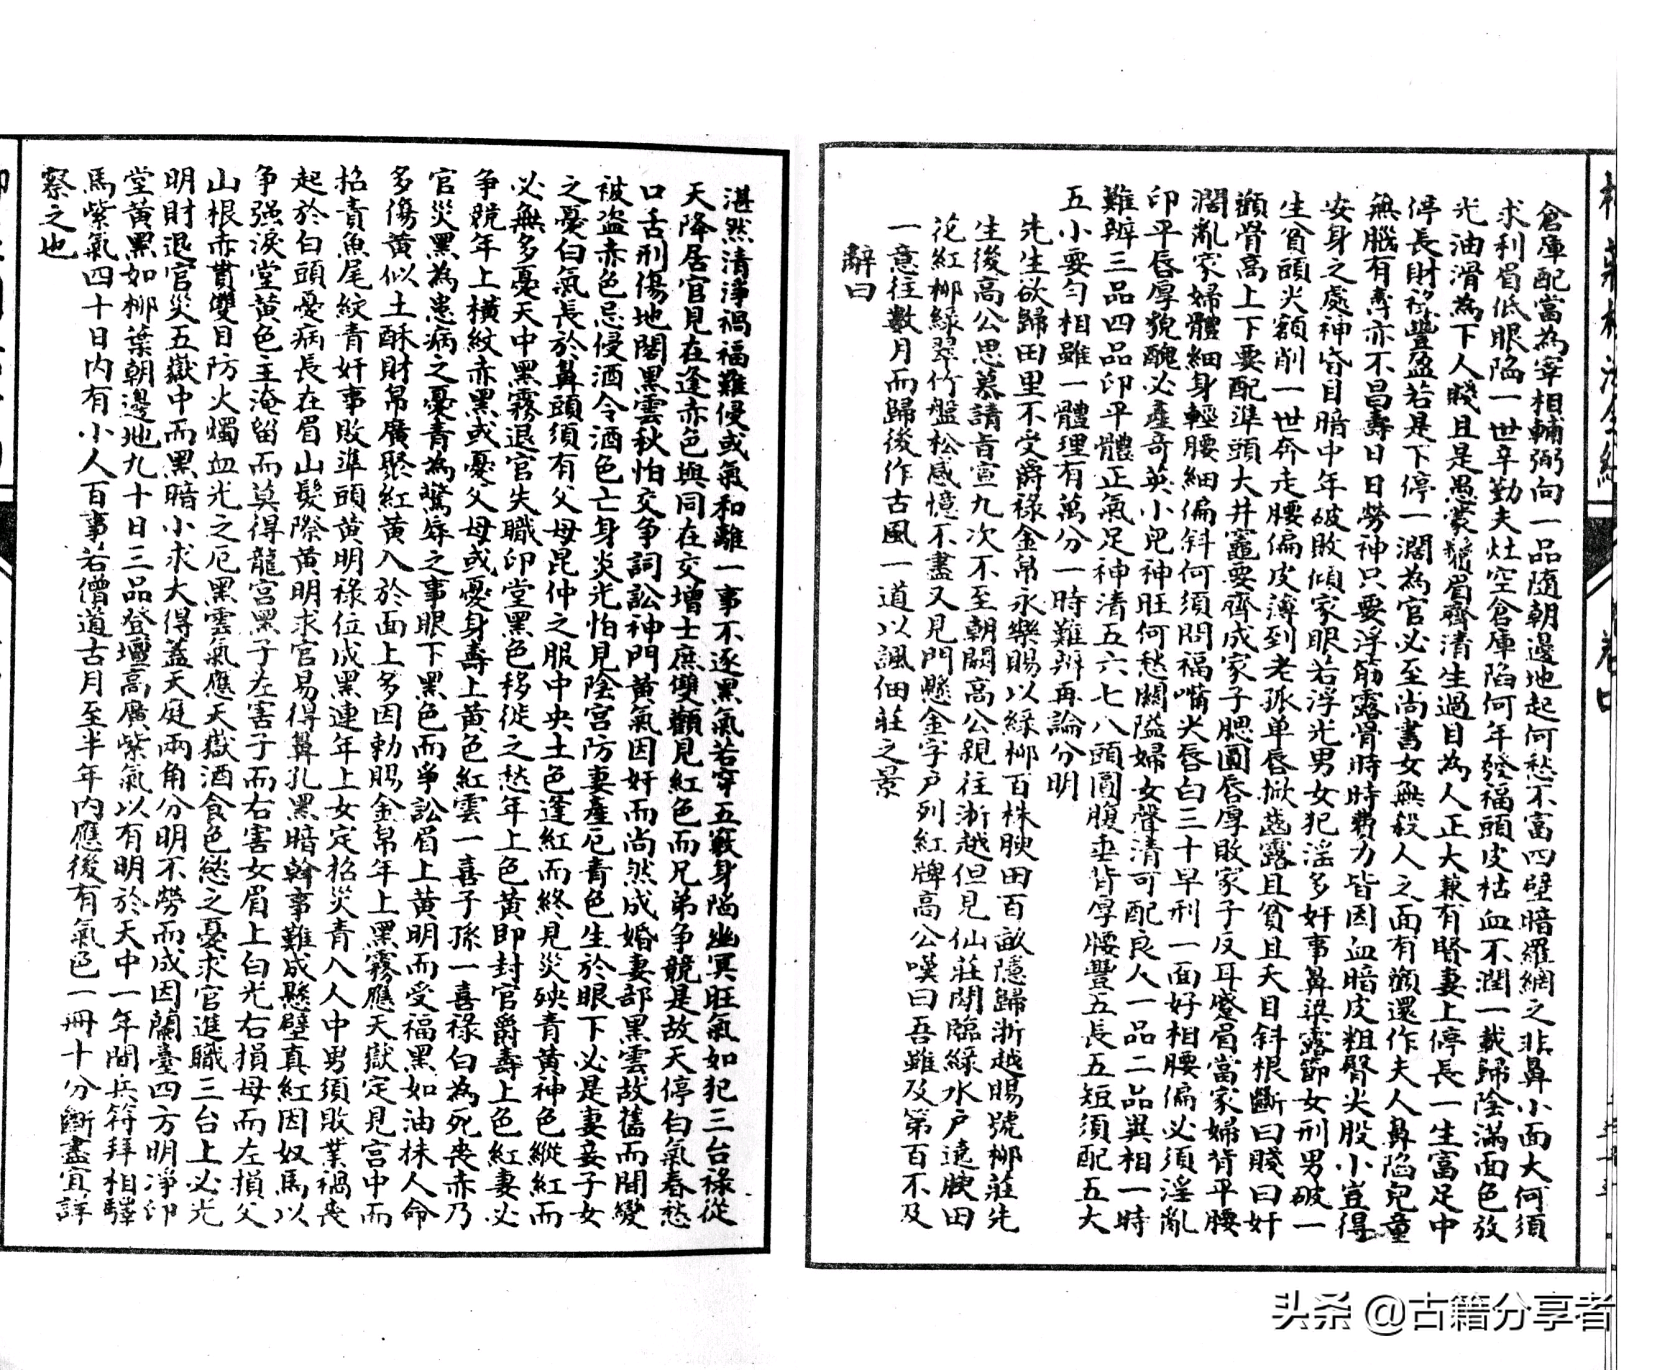 倉庫配當為宰相輔弼向一品隨朝邊地起何愁不富四壁暗羅網之非鼻小面大何須
求利眉低眼陷一世辛勤夫灶空倉庫陷何年發福頭皮枯血不潤一載歸陰滿面色放
光油滑為下人賤且是愚蒙鬚眉齊清生過目為人正大兼有賢妻上停長一生富足中
停長財祿豐盈若是下停一濶為官必至尚書女無殺人之面有顴還作夫人鼻陷兒童
無腦有壽亦不昌壽日日勞神只要浮筋露骨時時費力皆因血暗皮粗臀尖股小豈得
安身之處神昏目暗中年破敗傾家眼若浮光男女犯淫多奸事鼻梁露節女刑男破一
生貧頭尖額削一世奔走腰偏皮薄到老孤单唇掀齒露且貧且夭目斜根斷曰賤曰奸
顴骨高上下要配準頭大井竈要齊成家子腮圓唇厚敗家子反耳蹙眉當家婦背平腰
濶亂家婦體細身輕腰細偏斜何須問福嘴尖唇白三十早刑一面好相腰偏必須淫亂
印平唇厚貌醜必產奇英小兒神旺何愁關隘婦女聲清可配良人一品二品異相一時
難辨三品四品印平體正氣足神清五六七八頭圓腹垂背厚腰豐五長五短須配五大
五小要匀相雖一體理有萬分一時難辨再論分明
先生欲歸田里不受爵祿金帛永樂賜以綠柳百株腴田百畝隱歸浙越賜號柳莊先
生後高公思慕請旨宣九次不至朝闕高公親往浙越但見仙莊閉臨綠水戶遶腴田
花紅柳綠翠竹盤松感憶不盡又見門懸金字戶列紅牌高公嘆曰吾雖及第百不及
一意往數月而歸後作古風一道以諷佃莊之景
辭曰
湛然清淨禍福難侵或氣和離一事不逐黑氣若穿五竅身陷幽冥旺氣如犯三台祿從
天降居官見在逢赤色與同在交增士庶雙顴見紅色而兄弟争競是故天停白氣春愁
口舌刑傷地閣黑雲秋怕交争詞訟神門黄氣因奸而尚然成婚妻部黑雲故舊而間變
被盗赤色忌侵酒令酒色亡身炎光怕見陰宮防妻產厄青色生於眼下必是妻妾子女
之憂白氣長於鼻頭須有父母昆仲之服中央土色逢紅而終見災殃青黄神色縱紅而
必無多憂天中黑霧退官失職印堂黑色移徙之愁年上色黄即封官爵壽上色紅妻必
争競年上橫紋赤黑或憂父母或憂身壽上黄色紅雲一喜子孫一喜祿白為死喪赤乃
官災黑為患病之憂青為驚辱之事眼下黑色而爭訟眉上黄明而受福黑如油抹人命
多傷黄似土酥財帛廣聚紅黄入於面上多因勅賜金帛年上黑霧應天獄定見宮中而
招責魚尾紋青奸事敗準頭黄明祿位成黑連年上女定招災青入人中男須敗業禍喪
起於白頭憂病長在眉山髮際黄明求官易得鼻孔黑暗幹事難成懸壁真紅因奴馬以
争强淚堂黄色主淹留而莫得龍宮黑子左害子而右害女眉上白光右損母而左損父
山根赤貫雙目防火燭血光之厄黑雲氣應天嶽酒食色慾之憂求官進職三台上必光
明財退官災五嶽中而黑暗小求大得蓋天庭兩角分明不勞而成因蘭臺四方明淨印
堂黄黑如柳葉朝邊地九十日三品登壇高廣紫氣以有明於天中一年間兵符拜相驛
馬紫氣四十日内有小人百事若僧道古月至半年内應後有氣色一冊十分斷盡宜詳
察之也
卷四
头条 @古籍分享者